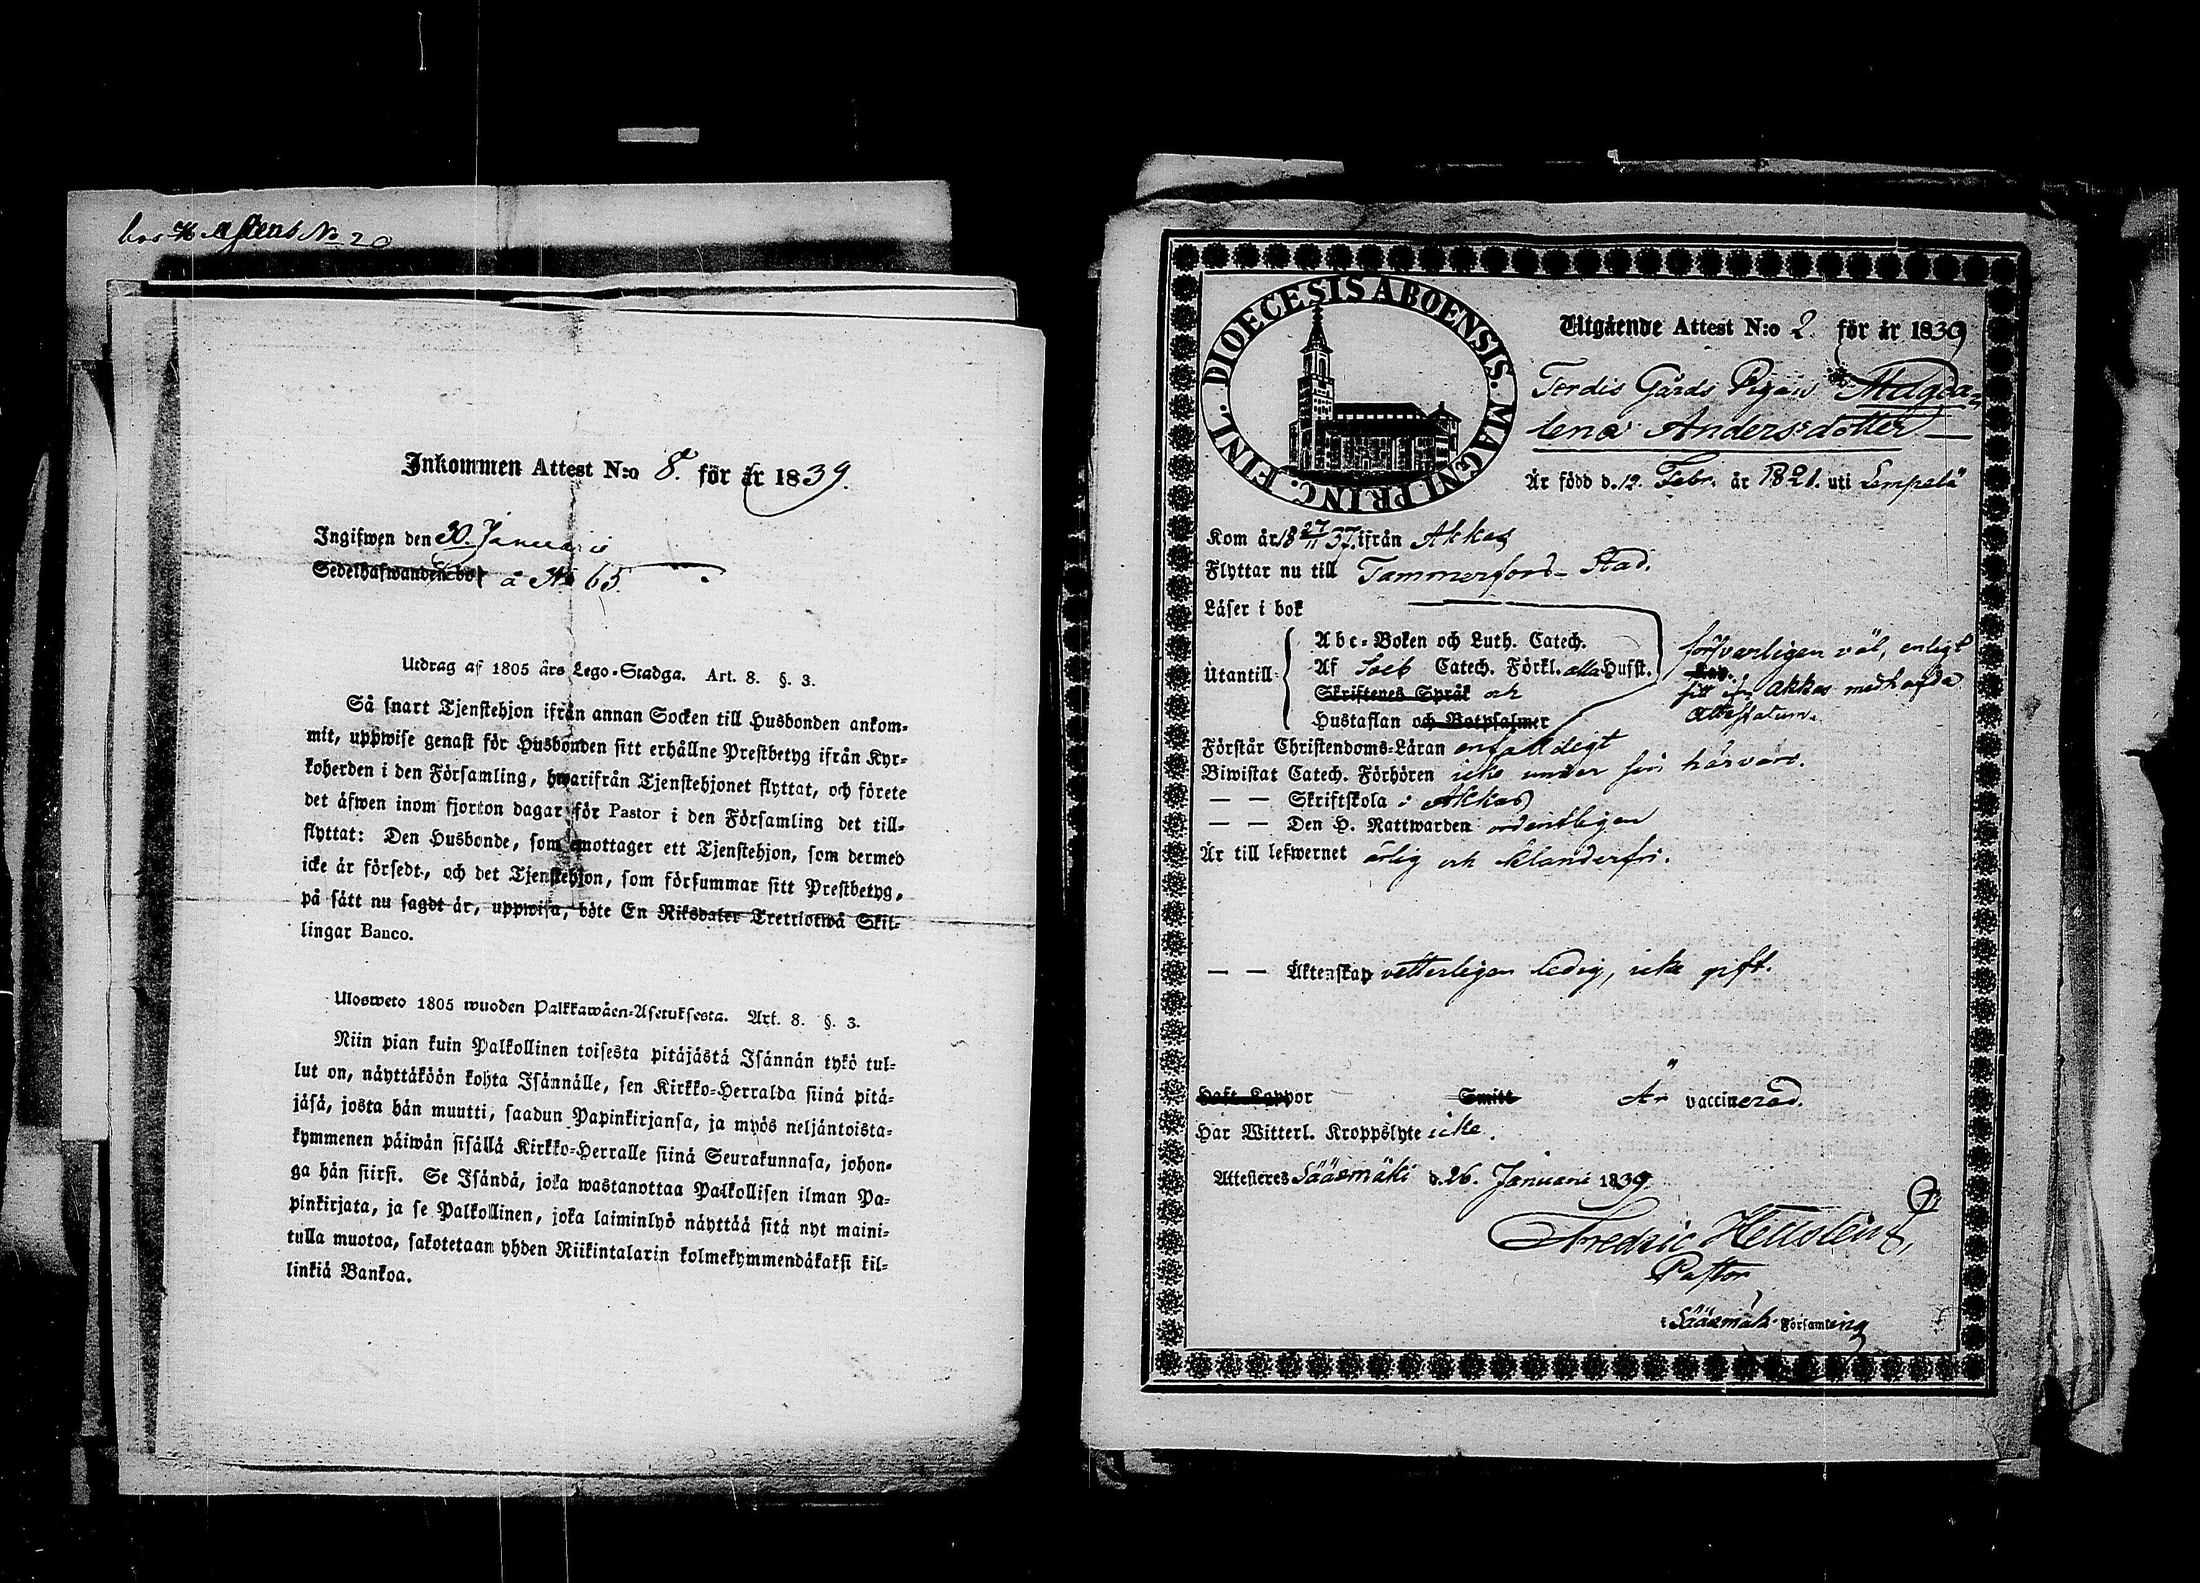 No 20
Inkommen Attest N:o 8. för år 1839.
Ingifwen den 30. Januarii
Sedelhafwanden bor å No 65.
Utdrag af 1805 års Lego-Stadga. Art. 8. §. 3.
Så snart Tjenstehjon ifrån annan Socken till Husbonden ankom-
mit, uppwise genast för Husbonden sitt erhållne Prestbetyg ifrån Kyr-
koherden i den Församling, hwarifrån Tjenstehjonet flyttat, och förete
det äfwen inom fjorton dagar för Pastor i den Församling det till-
flyttat: Den Husbonde, som emottager ett Tjenstehjon, som dermed
icke är försedt, och det Tjenstehjon, som försummar sitt Prestbetyg,
på sätt nu sagdt är, uppwisa, böte En Riksdaler Trettiotwå Skil-
lingar Banco.
Ulosweto 1805 wuoden Palkkawäen-Asetuksesta. Art. 8. §. 3.
Niin pian kuin Palkollinen toisesta pitäjästä Isännän tykö tul-
lut on, näyttäköön kohta Isännälle, sen Kirkko-Herralda siinä pitä-
jäsä, josta hän muutti, saadun Papinkirjansa, ja myös neljäntoista-
kymmenen päiwän sisällä Kirkko-Herralle siinä Seurakunnasa, johon-
ga hän siirsi. Se Isändä, joka wastanottaa Palkollisen ilman Pa-
pinkirjata, ja se Palkollinen, joka laiminlyö näyttää sitä nyt maini-
tulla muotoa, sakotetaan yhden Riikintalarin kolmekymmendäkaksi kil-
linkiä Bankoa.
DIOECESIS ABOENSIS. MAGNI PRINC. FINL.
Utgående Attest N:o 2. för år 1839
Gårds Pigan Magda-
lena Andersdotter
Är född d. 12. Febr. år 1821. uti Lempelä
Kom år 18 27/11 37. ifrån Akkas
Flyttar nu till Tammerfors Stad.
Läser i bok
Abc-Boken och Luth. Catech.
Utantill Af Sveb. Catech. Förkl. alla Hufst.
Skriftenes Språk och
Hustaflan och Botpsalmer
försvarligen väl, enligt
sitt ifrån Akkas medhafda
Attestatum.
Förstår Christendoms-Läran enfaldigt
Biwistat Catech. Förhören icke under sin härvaro.
— — Skriftskola i Akkas
— — Den H. Nattwarden ordentligen
Är till lefwernet ärlig och klanderfri.
— — Äktenskap vetterligen ledig, icke gift.
Haft Koppor Smitt Är vaccinerad.
Har Witterl. Kroppslyte icke.
Attesteres Sääsmäki d. 26. Januarii 1839.
Fredric
Pastor
i Sääsmäki Församling